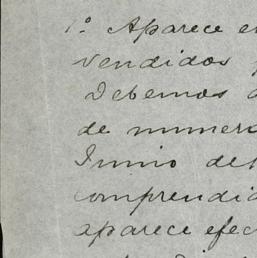 1º. Aparece e
vendidos
Debemos
de numer
Junio de
comprendi
aparece efec